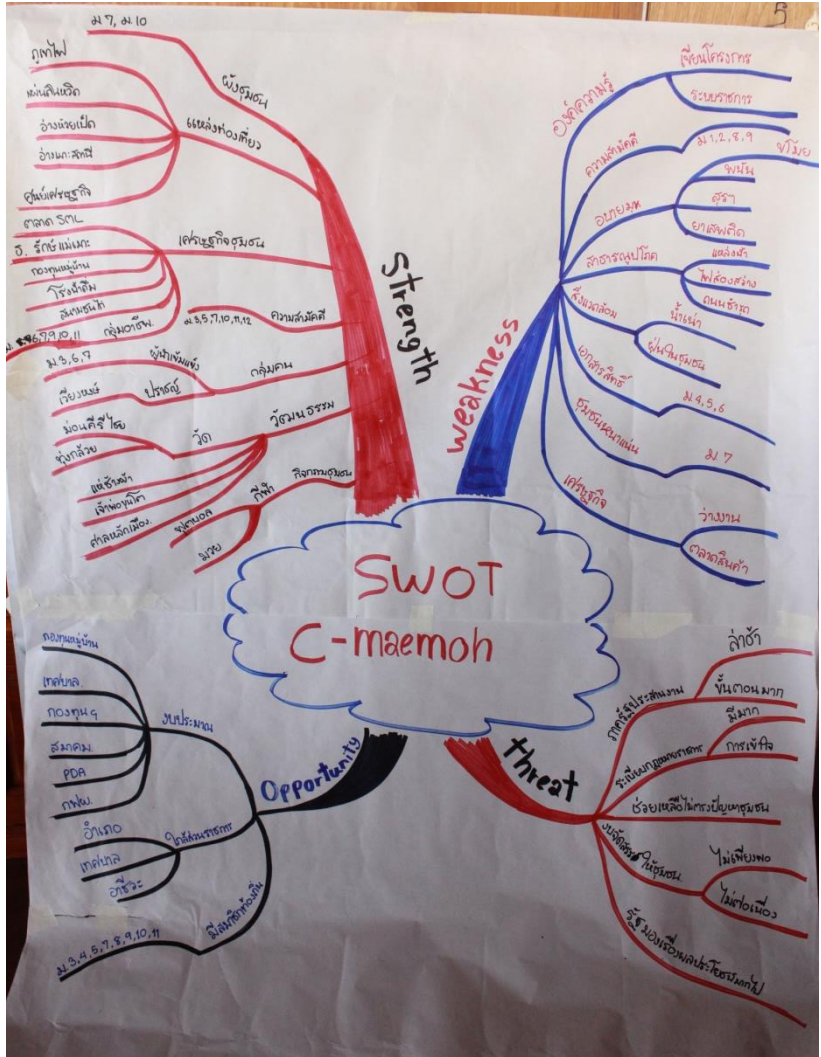 5
SWOT
C-maemoh
Strength
ม.7, ม.10
ผังชุมชน
แหล่งท่องเที่ยว
ภูเขาไฟ
แผ่นดินหวิด
อ่างห้วยเป็ด
อ่างแกะสถานี
ศูนย์เศรษฐกิจ
เศรษฐกิจชุมชน
ตลาด SML
ธ. รักษ์แม่เมาะ
กองทุนหมู่บ้าน
โรงน้ำดื่ม
กลุ่มอาชีพ
ความสามัคคี
ม.3,5,7,10,11,12
กลุ่มคน
ผู้นำเข้มแข็ง
ม.3,6,7
ปราชญ์
เวียงหงษ์
วัฒนธรรม
วัด
ม่อนคีรีชัย
ทุ่งกล้วย
แห่ช้างผ้า
เจ้าพ่อขุนโต
ศาลหลักเมือง
กิจกรรมชุมชน
กีฬา
ฟุตบอล
มวย
Weakness
องค์ความรู้
เขียนโครงการ
ระบบราชการ
ความสามัคคี
ม.1,2,8,9
อบายมุข
ขโมย
พนัน
สุรา
ยาเสพติด
สาธารณูปโภค
แหล่งน้ำ
ไฟส่องสว่าง
ถนนชำรุด
สิ่งแวดล้อม
น้ำเน่า
ฝุ่นในชุมชน
เอกสารสิทธิ์
ม.4,5,6
ชุมชนหนาแน่น
ม.7
เศรษฐกิจ
ว่างงาน
ตลาดสินค้า
Opportunity
งบประมาณ
กองทุนหมู่บ้าน
เทศบาล
กองทุนฯ
สมาคม
PDA
กฟผ.
ใกล้ส่วนราชการ
อำเภอ
เทศบาล
อาชีวะ
มีสมาชิกท้องถิ่น
ม.3,4,5,7,8,9,10,11
threat
ภาครัฐประสานงาน
ล่าช้า
ขั้นตอนมาก
ระเบียบกฎหมายราชการ
มีมาก
การเข้าใจ
ช่วยเหลือไม่ตรงปัญหาชุมชน
งบจัดสรรให้ชุมชน
ไม่เพียงพอ
ไม่ต่อเนื่อง
รัฐมองเรื่องผลประโยชน์มากไป